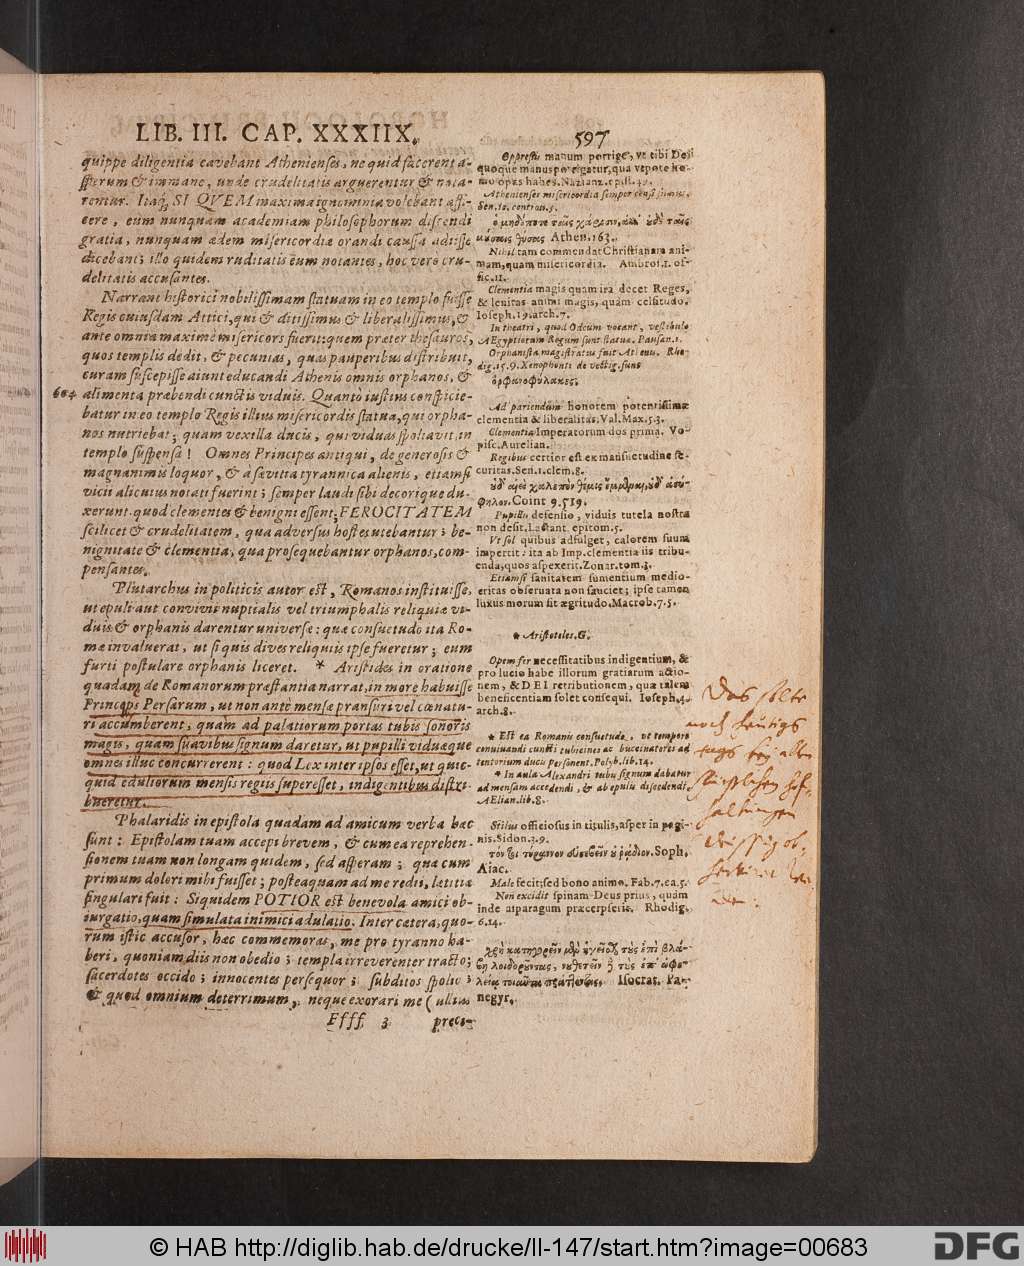 LIB. III. CAP. XXXIIX.
597
quippe diligentia cavebant Athenienses, ne quid facerent a-
sperum & immane, unde crudelitatis arguerentur & nota-
rentur. Itaq; SI QVEM maxima ignominia volebant affi-
cere, eum nunquam academiam philosophorum discendi
gratia, nunquam ædem misericordiæ orandi caussa adiisse
dicebant; illo quidem ruditatis eum notantes, hoc vero cru-
delitatis accusantes.
Narrant historici nobilissimam statuam in eo templo fuisse
Regis cuiusdam Attici, qui & ditissimus & liberalissimus, &
ante omnia maximè misericors fuerit: quem præter thesauros,
quos templis dedit, & pecunias, quas pauperibus distribuit,
curam suscepisse aiunt educandi Athenis omnis orphanos, &
604 alimenta præbendi cunctis viduis. Quanto iustius conspicie-
batur in eo templo Regis illius misericordis statua, qui orpha-
nos nutriebat; quam vexilla ducis, qui viduas spoliavit, in
templo suspensa! Omnes Principes antiqui, de generosis &
magnanimis loquor, & à sævitia tyrannica alienis, etiamsi
vicii alicuius notati fuerint; semper laudi sibi decorique du-
xerunt. quod clementes & benigni essent; FEROCITATEM
scilicet & crudelitatem, qua adversus hostes utebantur; be-
nignitate & clementia, qua prosequebantur orphanos, com-
pensantes.
Plutarchus in politicis autor est, Romanos instituisse,
ut epuli aut convivii nuptialis vel triumphalis reliquiæ vi-
duis & orphanis darentur universæ: quæ consuetudo ita Ro-
mæ invaluerat, ut si quis dives reliquiis ipse fueretur; eum
furti postulare orphanis liceret. * Aristides in oratione
quadam de Romanorum præstantia narrat, in more habuisse
Princeps Persarum, ut non ante mensæ pransuri vel cœnatu-
ri accumberent, quàm ad palatiorum portas tubis sonoris
magis, quam suavibus signum daretur, ut pupilli viduæque
omnes illuc concurrerent: quod Lex inter ipsos esset, ut quic-
quid eduliorum mensis regiis superesset, indigentibus distri-
bueretur.
Phalaridis in epistola quadam ad amicum verba hæc
sunt: Epistolam tuam accepi brevem, & cum ea reprehen-
sionem tuam non longam quidem, sed asperam; quæ cum
primum dolori mihi fuisset; posteaquam ad me redii, lætitiæ
singulari fuit: Siquidem POTIOR est benevola amici ob-
iurgatio, quam simulata inimici adulatio. Inter cætera, quo-
rum istic accusor, hæc commemoras, me pro tyranno ha-
beri, quoniam diis non obedio; templa irreverenter tracto;
sacerdotes occido; innocentes persequor; subditos spolio;
& quod omnium deterrimum, neque exorari me (ullius
Ffff 3 preci-
Oppressis manum porrige, vt tibi De9
quoque manus porrigatur, qua vtpote ho-
mo opus habes. Nazianz. epist. 42.
Athenienses misericordia semper censi fuerunt.
Sen. 10. controu. 5.
Athen. 163.
Nihil tam commendat Christianam ani-
mam, quam misericordia. Ambros. 1. of-
fic. 11.
Clementia magis quam ira decet Reges,
& lenitas animi magis, quàm celsitudo.
Ioseph. 19. arch. 7.
In theatri, quod Odeum vocant, vestibulo
AEgyptiorum Regum sunt statuæ. Pausan. 1.
Orphanista magistratus fuit Athenis. Rho-
dig. 15. 9. Xenophonti de vectig. sunt
ὀρφανοφύλακες.
Ad pariendum honorem potentissimæ
clementia & liberalitas. Val. Max. 5. 3.
Clementia Imperatorum dos prima. Vo-
pisc. Aurelian.
Regibus certior est ex mansuetudine se-
curitas. Sen. 1. clem. 8.
Coint 9. 519.
Pupillis defensio, viduis tutela nostra
non desit. Lactant. epitom. 5.
Vt sol quibus adfulget, calorem suum
impertit: ita ab Imp. clementia iis tribu-
enda, quos aspexerit. Zonar. tom. 3.
Etiamsi sanitatem sumentium medio-
critas obseruata non sauciet; ipse tamen
luxus morum sit ægritudo. Macrob. 7. 5.
* Aristoteles. G.
Opem fer necessitatibus indigentium, &
pro lucro habe illorum gratiarum actio-
nem, & DEI retributionem, quæ talem
beneficentiam solet consequi. Ioseph. 4.
arch. 8.
* Est ea Romanis consuetudo, vt tempore
conuiuandi cuncti tubicines ac buccinatores ad
tentorium ducis personent. Polyb. lib. 14.
* In aula Alexandri tubis signum dabatur
ad mensam accedendi, & ab epulis discedendi.
AElian. lib. 8.
Stilus officiosus in titulis, asper in pagi-
nis. Sidon. 3. 9.
Soph.
Aiac.
Male fecit; sed bono animo. Fab. 7. ca. 5.
Non excidit spinam Deus prius, quàm
inde asparagum præcerpseris. Rhodig.
6. 14.
Isocrat. Pa-
negyr.
Das solte
noch heutigs
tags bey allen
fürstlichen hof-
haltungen
© HAB http://diglib.hab.de/drucke/li-147/start.htm?image=00683
DFG